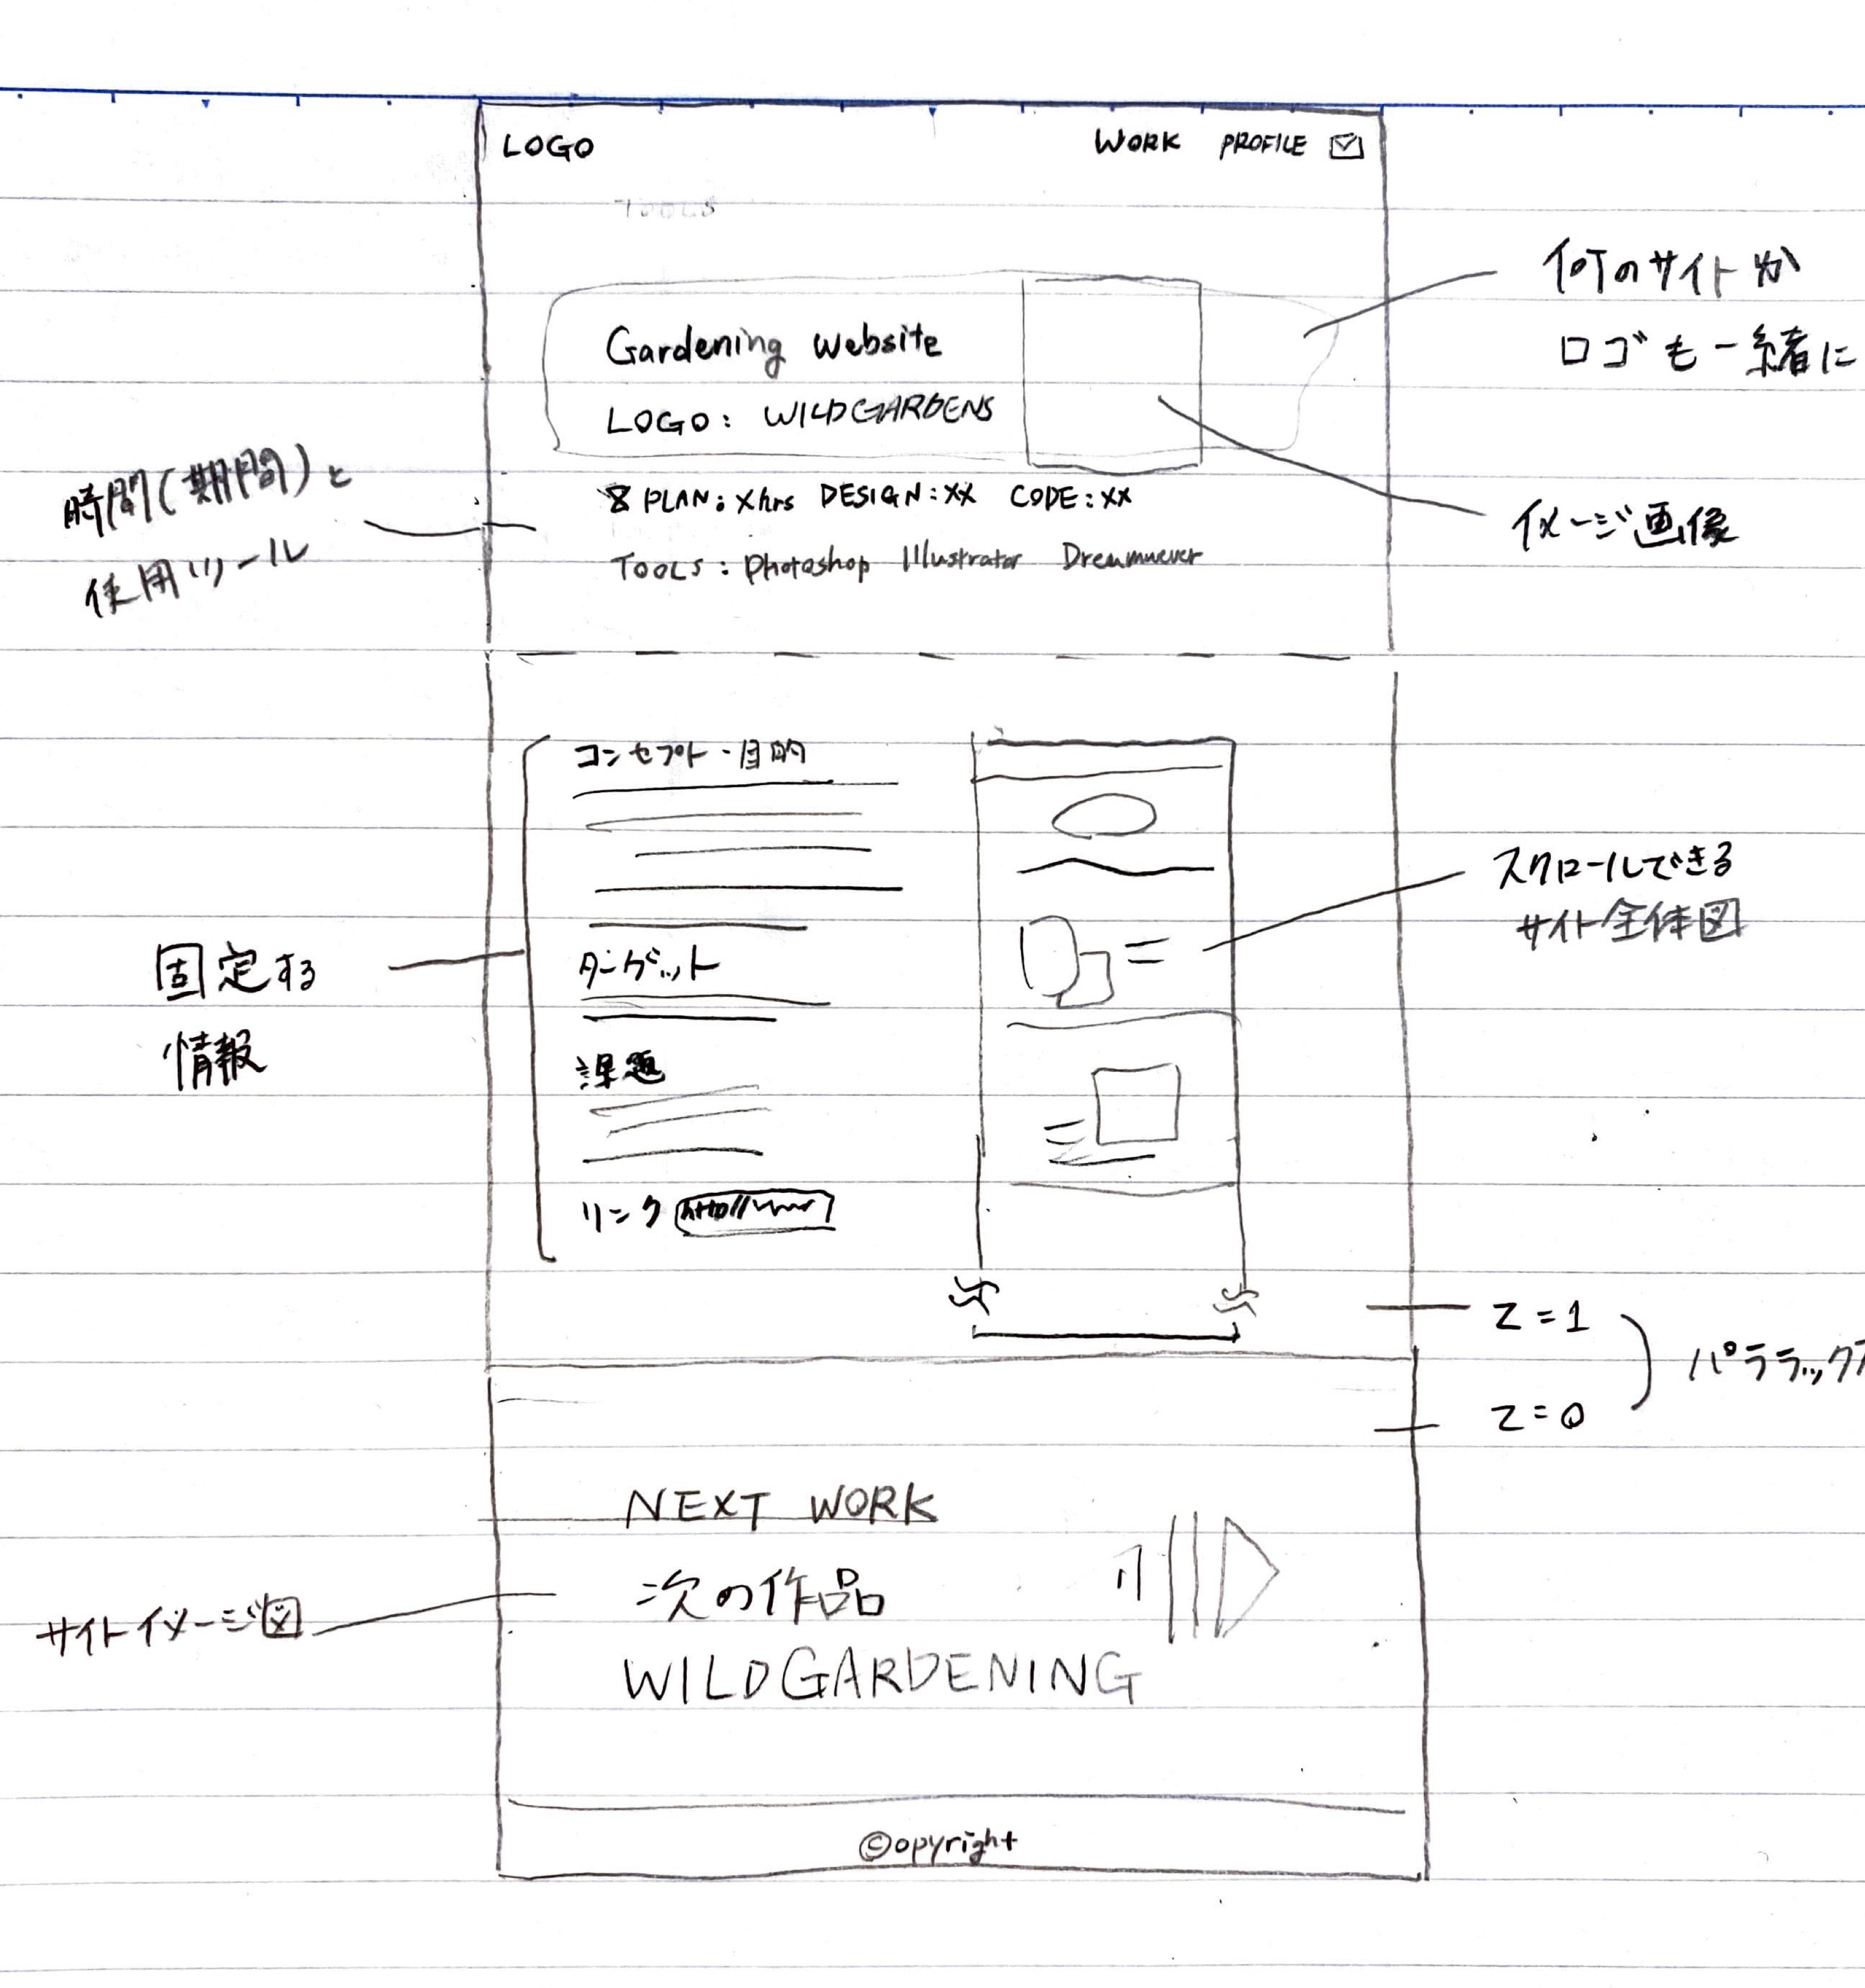 LOGO
WORK PROFILE
TOOLS
何のサイトか
ロゴも一緒に
Gardening website
LOGO: WILDGARDENS
時間(期間)と
使用ツール
PLAN: Xhrs DESIGN: XX CODE: XX
イメージ画像
TOOLS: Photoshop Illustrator Dreamwever
コンセプト・目的
スクロールできる
サイト全体図
固定する
情報
ターゲット
課題
リンク
Z=1
パララックス
Z=0
NEXT WORK
次の作品
サイトイメージ図
WILDGARDENING
©opyright